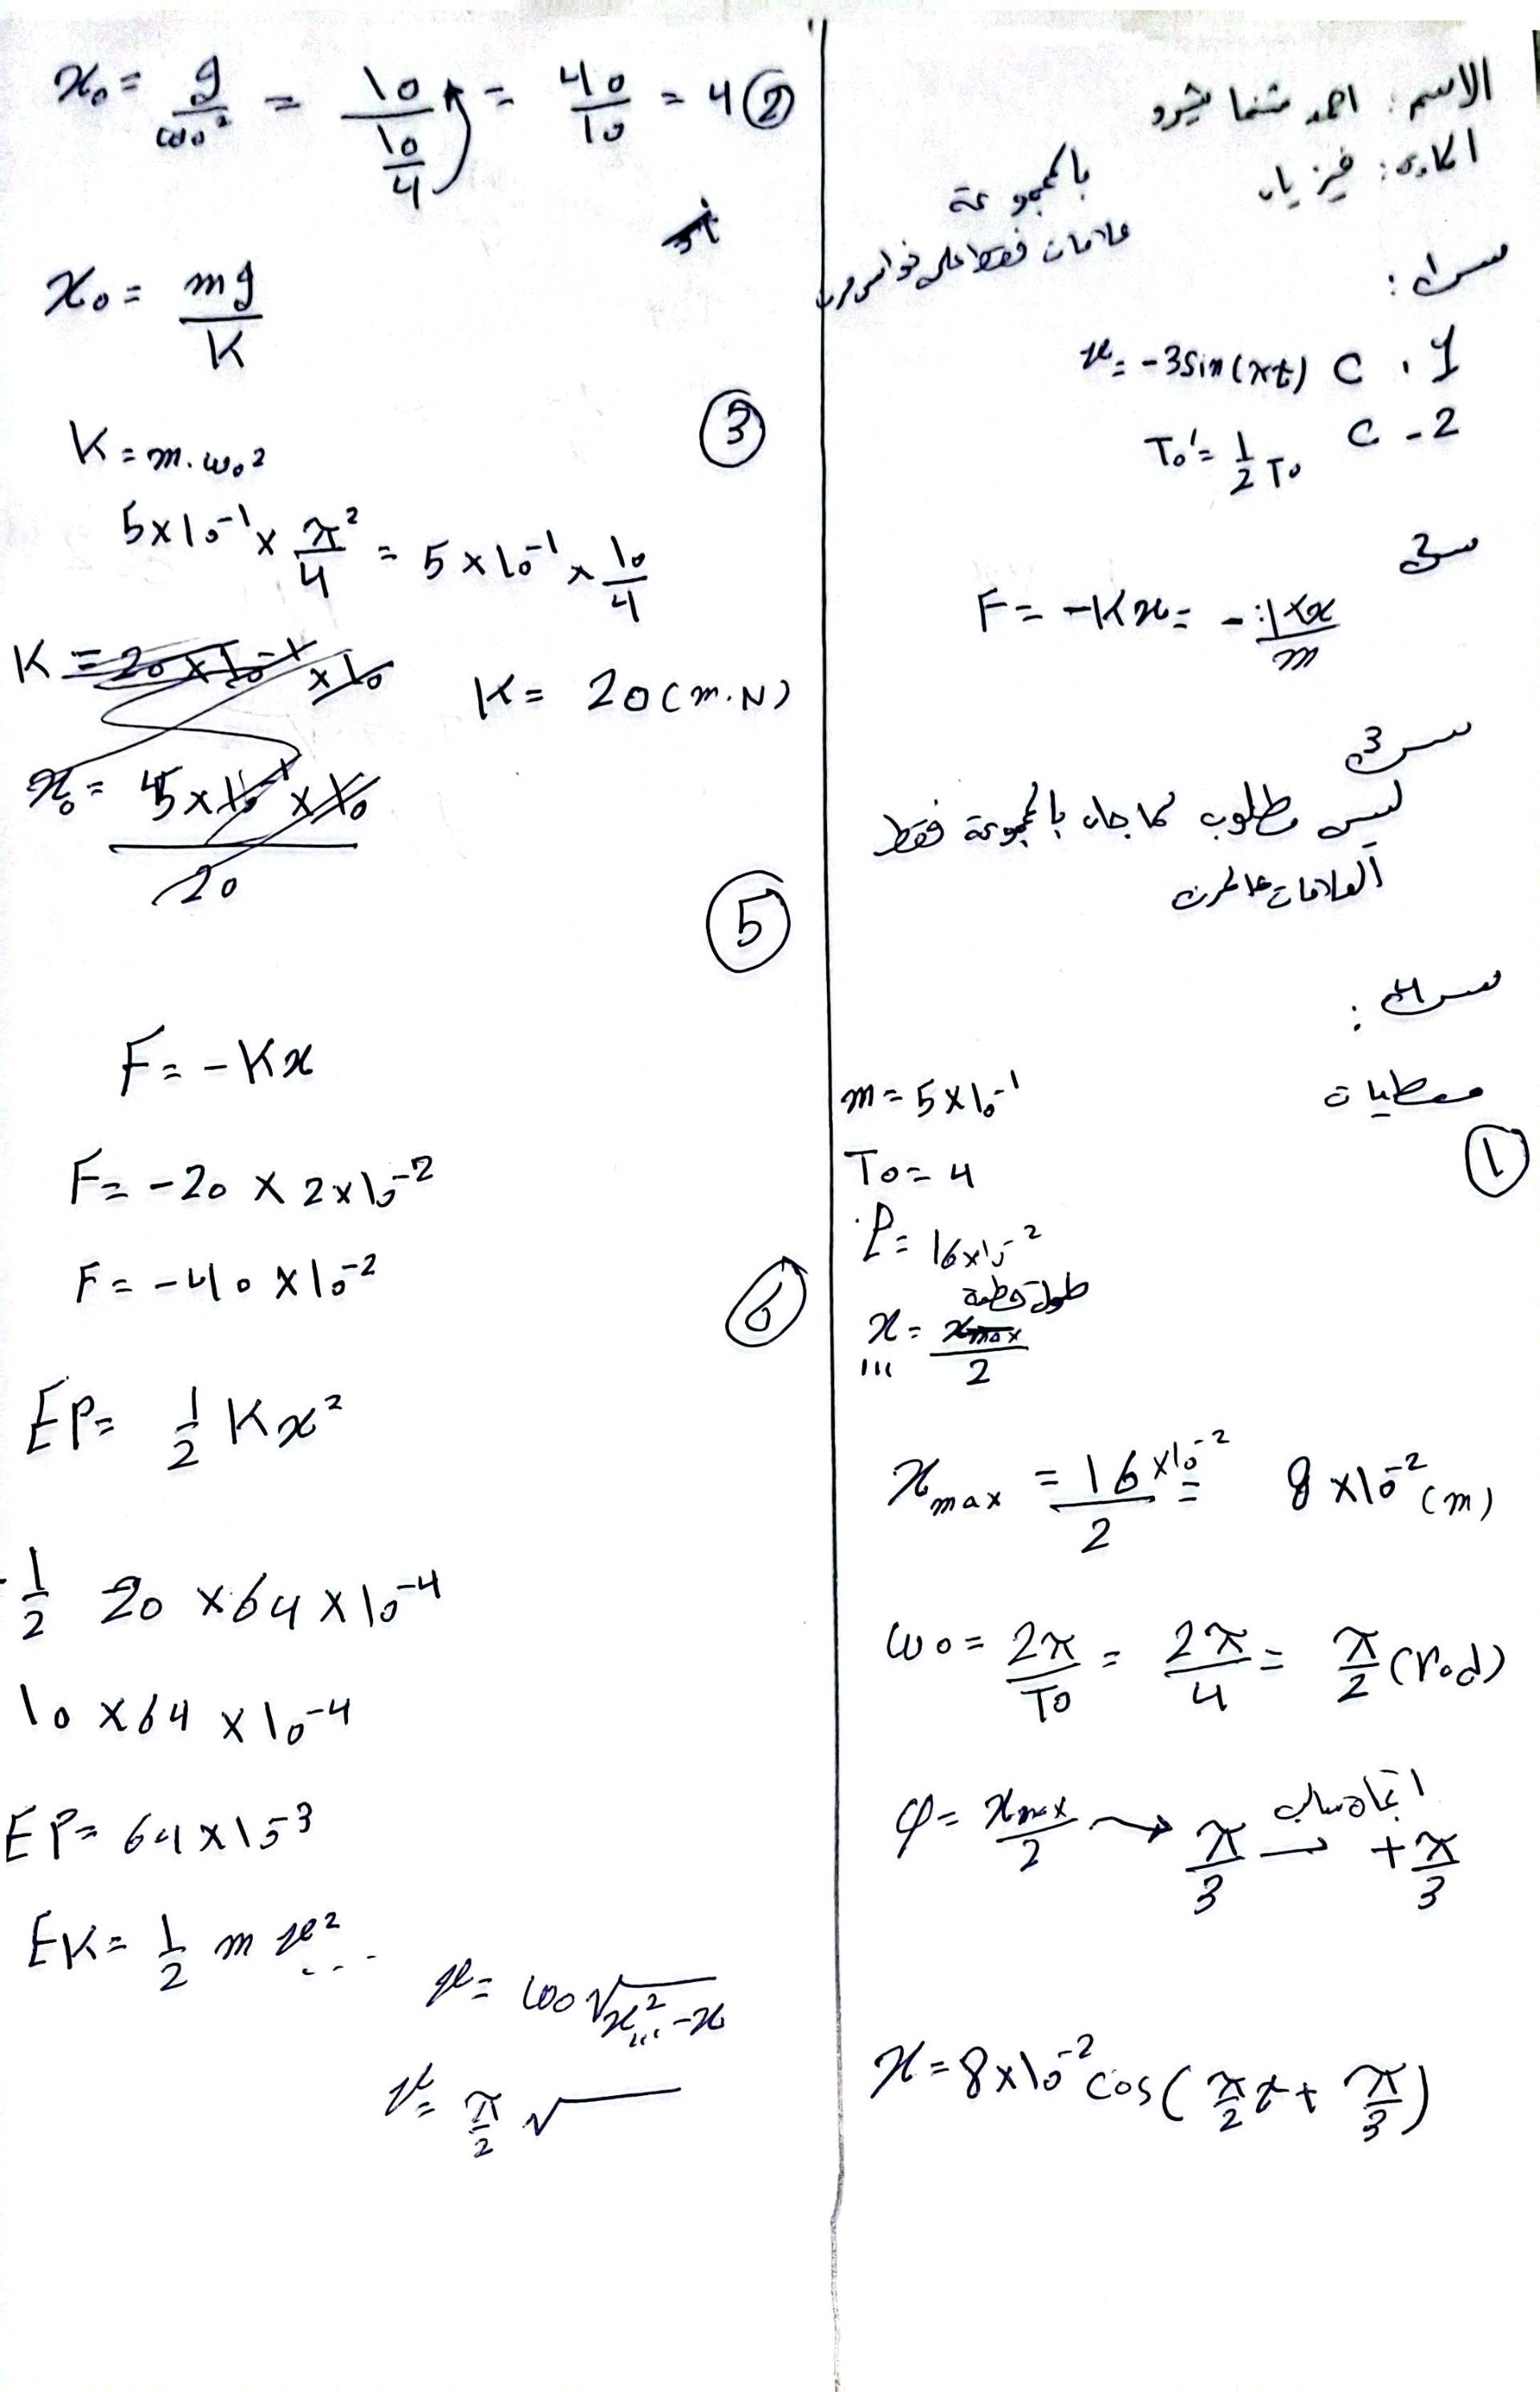 الاسم: احمد
المادة: فيزياء
بالمجموعة
علامات فقط على
س1:
1. C x = -3 sin(πt)
2 - C T₀' = 1/2 T₀
س2
F = -Kx =
س3
ليس مطلوب كما جاء بالمجموعة فقط
العلامات
س4:
معطيات
①
m = 5×10⁻¹
T₀ = 4
P = 16×10⁻²
طول قطعة
x = xmax/2
xmax = 16×10⁻²/2 = 8×10⁻² (m)
ω₀ = 2π/T₀ = 2π/4 = π/2 (rad)
φ = xmax/2 → π/3 اتجاه سالب → + π/3
x = 8×10⁻² cos(π/2 t + π/3)
x₀ = g/ω₀² = 10/(10/4) = 40/10 = 4 ②
x₀ = mg/K
③
K = m.ω₀²
5×10⁻¹ × π²/4 = 5×10⁻¹ × 10/4
K = 20×10⁻¹ × 10
K = 20 (m.N)
x₀ = 5×10⁻¹×10/20
⑤
F = -Kx
F = -20 × 2×10⁻²
F = -40 × 10⁻²
⑥
EP = 1/2 Kx²
1/2 20 × 64 × 10⁻⁴
10 × 64 × 10⁻⁴
EP = 64×10⁻³
EK = 1/2 m v² ...
v = ω₀√x²... - x
v = π/2 √